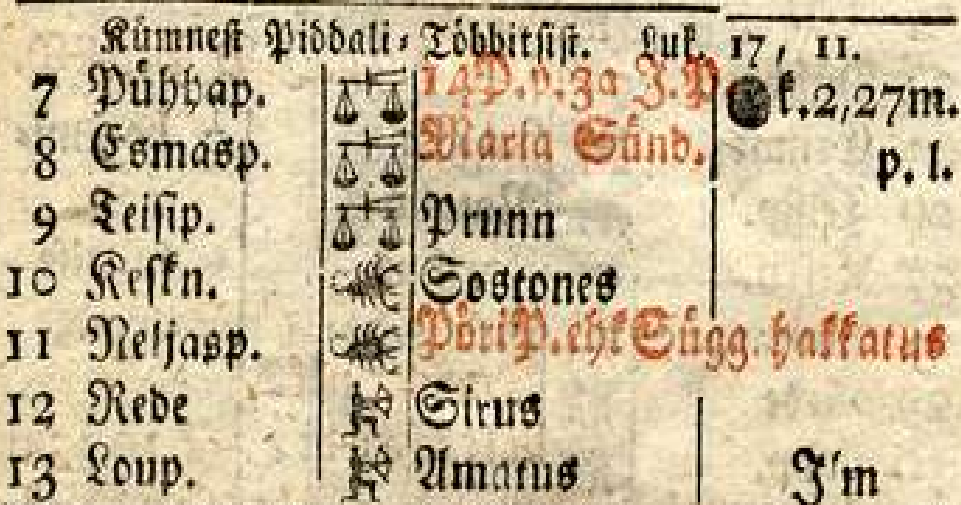 Kümnest Piddali-Többitsist. Luk. 17, 11.
7 Pühhap. 14 P. p. 3a J. P k. 2,27m.
8 Esmasp. Maria Sünd. p. l.
9 Teisip. Prunn
10 Keskn. Sostones
11 Neljasp. Pöri P. ehk Sügg. hakkatus
12 Rede Sirus
13 Loup. Amatus J'm